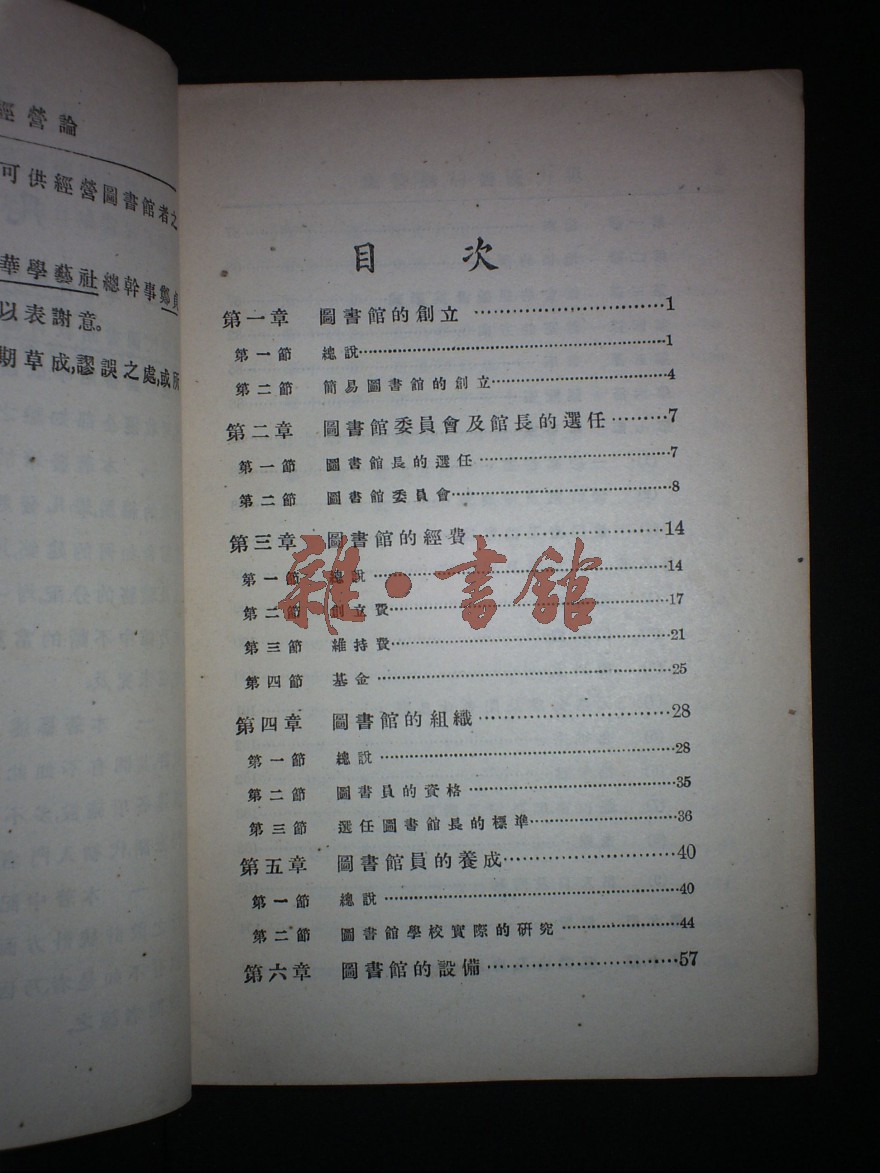 經營論
可供經營圖書館者之
華學藝社總幹事鄭貞
以表謝意。
期草成,謬誤之處,或所
目 次
第一章 圖書館的創立……………………………1
第一節 總說……………………………………………1
第二節 簡易圖書館的創立…………………………4
第二章 圖書館委員會及館長的選任………7
第一節 圖書館長的選任……………………………7
第二節 圖書館委員會………………………………8
第三章 圖書館的經費……………………………14
第一節 總說……………………………………………14
第二節 創立費…………………………………………17
第三節 維持費…………………………………………21
第四節 基金……………………………………………25
第四章 圖書館的組織……………………………28
第一節 總說……………………………………………28
第二節 圖書員的資格………………………………35
第三節 選任圖書館長的標準………………………36
第五章 圖書館員的養成…………………………40
第一節 總說……………………………………………40
第二節 圖書館學校實際的研究……………………44
第六章 圖書館的設備……………………………57
雜·書館